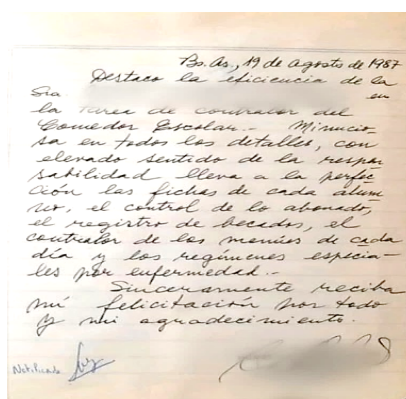 Bs. As., 19 de agosto de 1987
Destaco la eficiencia de la
Sra en
la tarea de contralor del
Comedor Escolar.- Minucio-
sa en todos los detalles, con
elevado sentido de la respon
sabilidad lleva a la perfec
ción las fichas de cada alum
no, el control de lo abonado,
el registro de becados, el
contralor de los menúes de cada
día y los regímenes especia-
les por enfermedad.-
Sinceramente reciba
mi felicitación por todo
y mi agradecimiento.